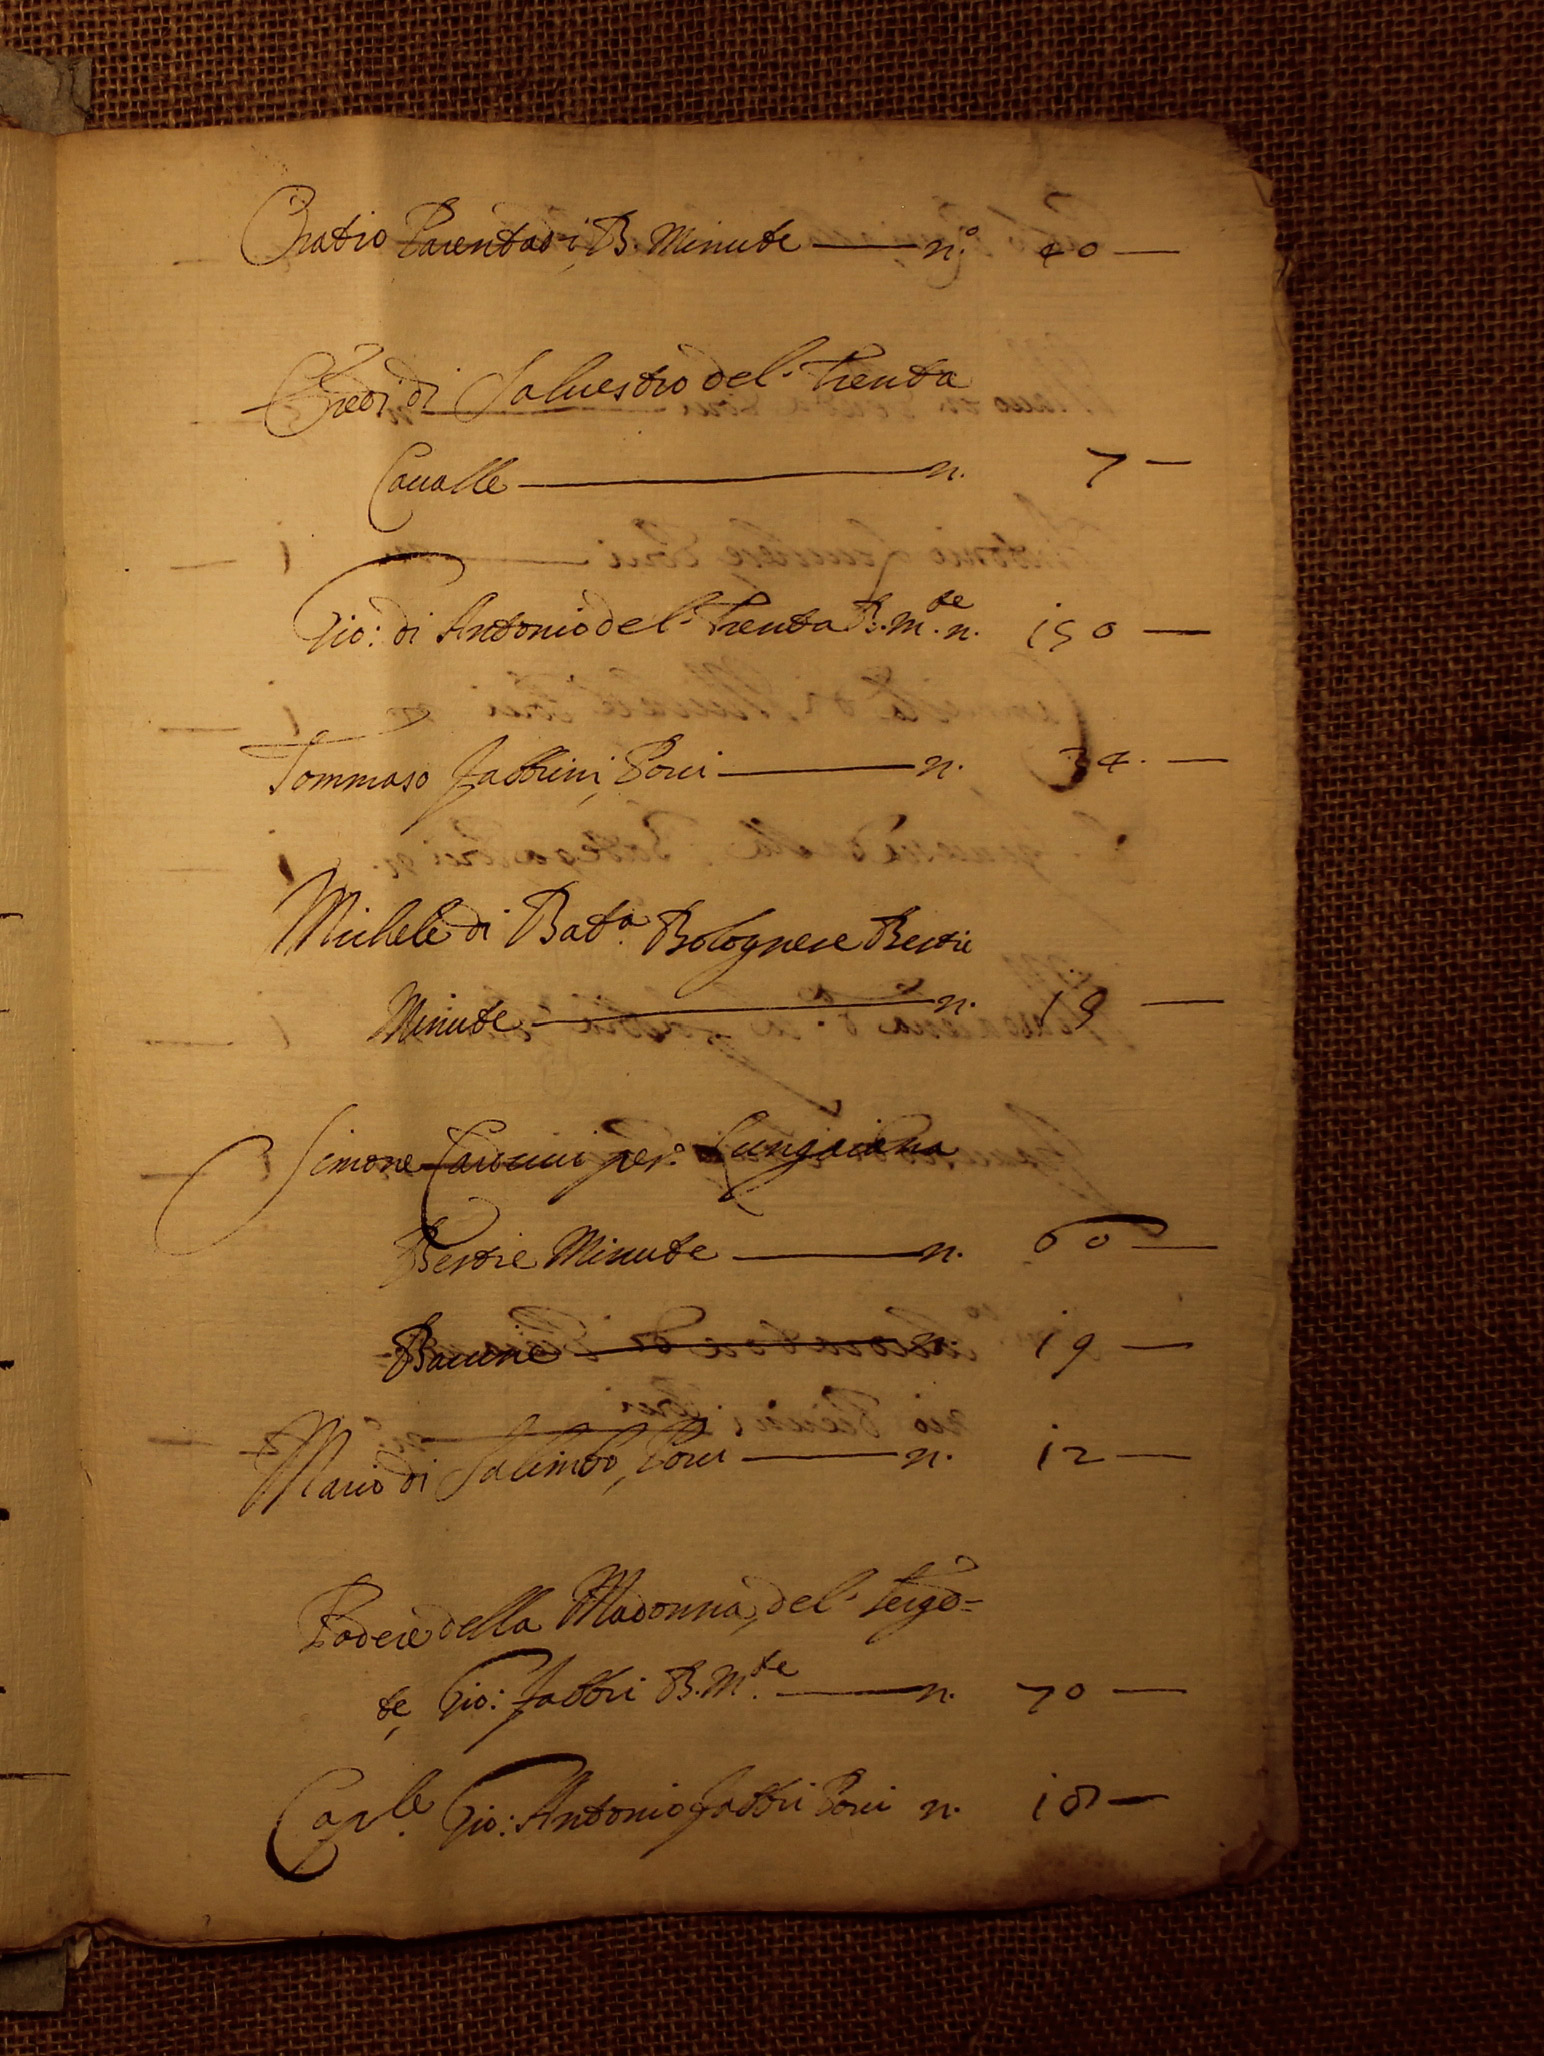 Oratio Parentadi, B. Minute — n.º 40 —
Eredi di Salvestro del Trenta
Cavalle — n. 7 —
Gio: di Antonio del Trenta B. M.te n. 150 —
Tommaso Fabbrini, Porci — n. 34. —
Michele di Bat.a Bolognese Bestie
Minute — n. 19 —
Simone per. Lungaiana
Bestie Minute — n. 60 —
Baccine — n. 19 —
Mario di Salimbo, Porci — n. 12 —
Podere della Madonna, del
te, Gio: Fabbri B. M.te — n. 70 —
Cap.le Gio: Antonio Fabbri Porci n. 18 —